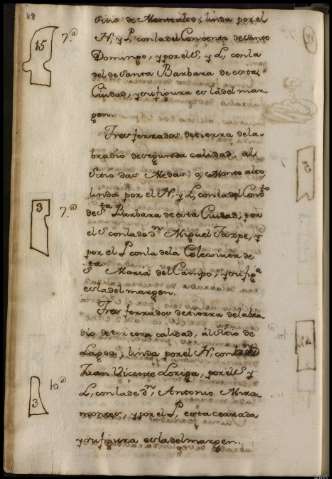 Sitio de Montealto; linda por el
N. y P. con la del Convento de Santo
Domingo, y por el S. y L. con la
del de Santa Barbara de esta
Ciudad, y su figura es la del mar
gen.
15
7.ª
Tres ferrados de tierra de la
bradio de segunda calidad, al
Sitio das Medas o Monte alto
linda por el N. y L. con la del Conv.to
de S.ta Barbara de esta Ciudad, por
el S. con la de D.n Miguel y
por el P. con la de la Colecturia de
S.ta Maria del Campo, y su fig.ª
es la del margen.
3
7.ª
Tres ferrados de tierra de labra
dio de tercera calidad, al Sitio de
Lagoa; linda por el N. con
Juan Vicente Loriga, por el S. y
L. con la de D.n Antonio
y por el P. esta cerrada
y su figura es la del margen.
3
10.ª